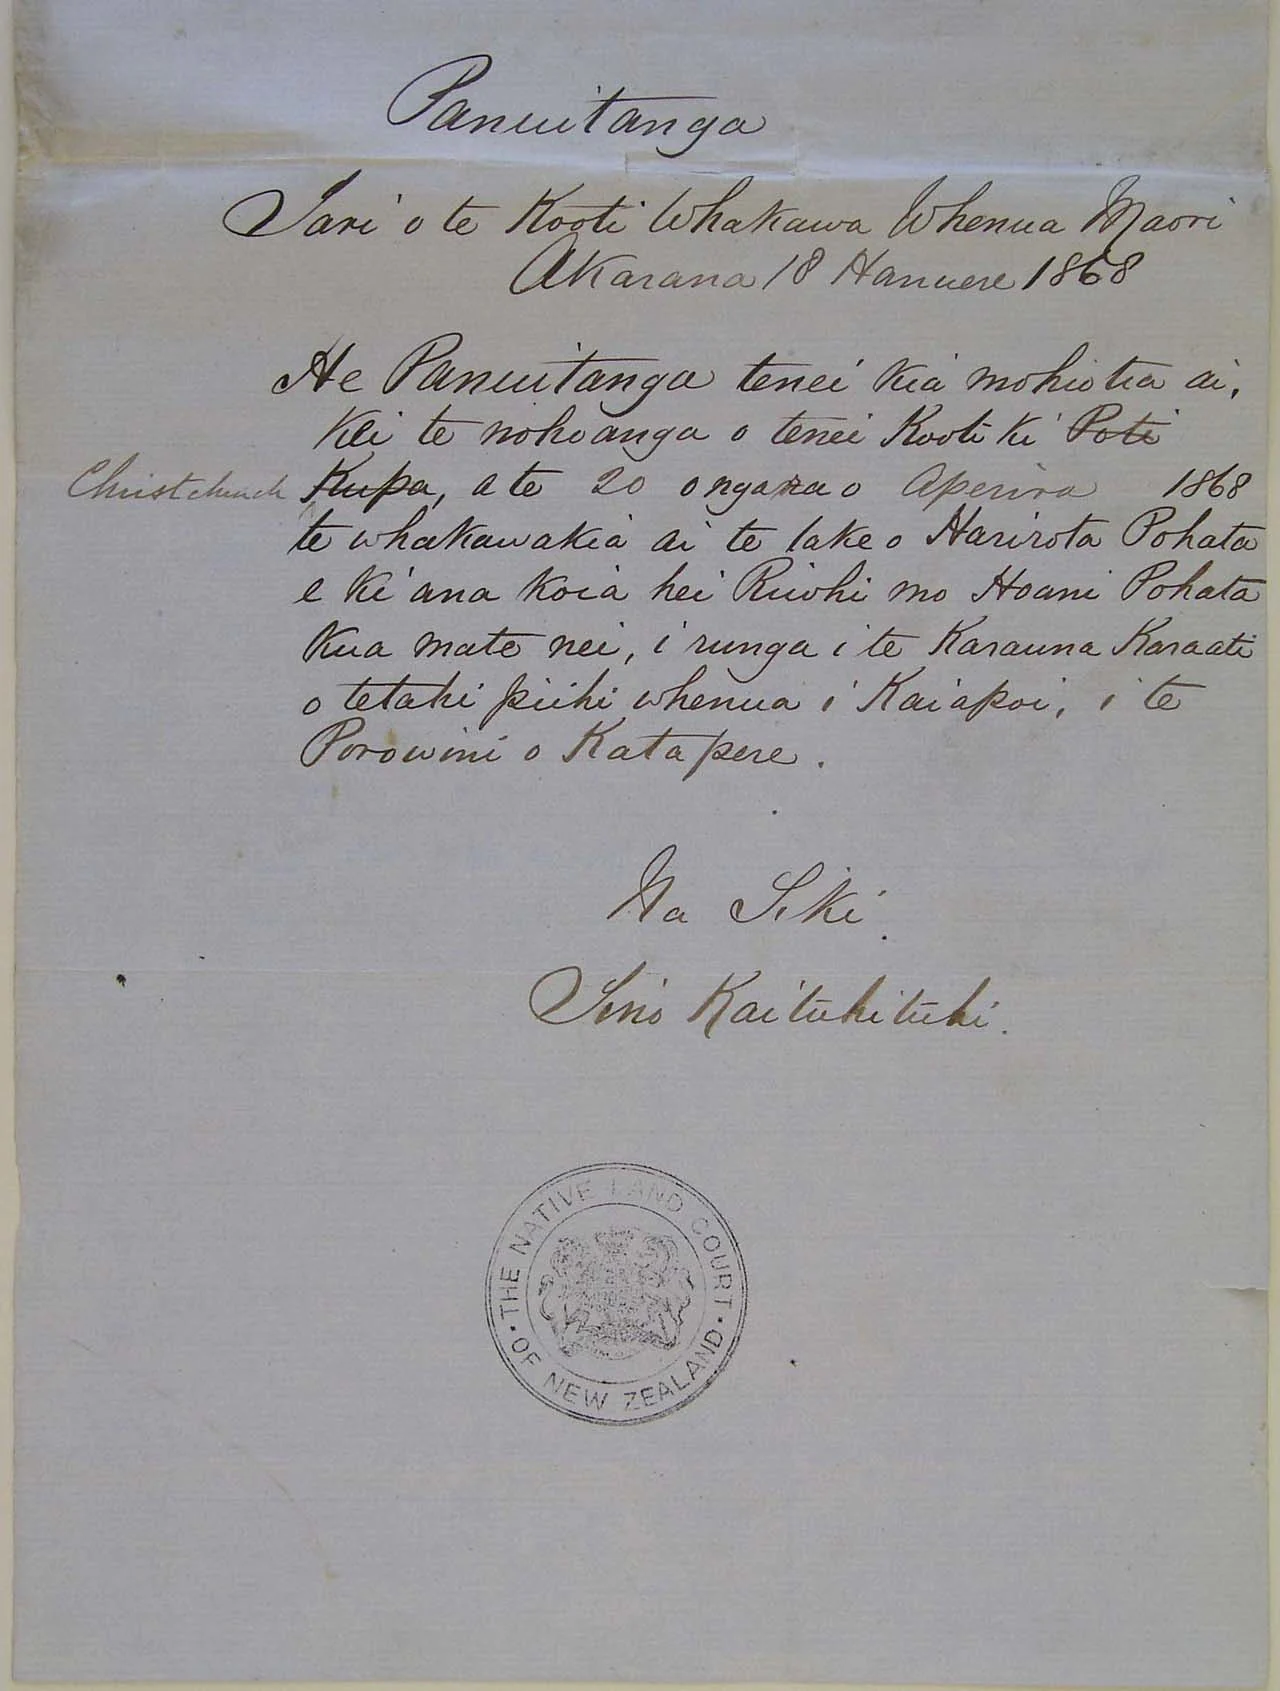 Panuitanga
Tari o te Kooti Whakawa Whenua Maori
Akarana 18 Hanuere 1868
He Panuitanga tenei kia mohiotia ai,
kei te nohoanga o tenei Kooti ki Poti
Christchurch Kupa, a te 20 o nga ra o Aperira 1868
te whakawakia ai te take o Harirota Pohata
e ki ana koia hei Riiwhi mo Hoani Pohata
kua mate nei, i runga i te Karauna Karaati
o tetahi piihi whenua i Kaiapoi, i te
Porowini o Katapere.
Na
Tino Kaituhituhi.
THE NATIVE LAND COURT
OF NEW ZEALAND